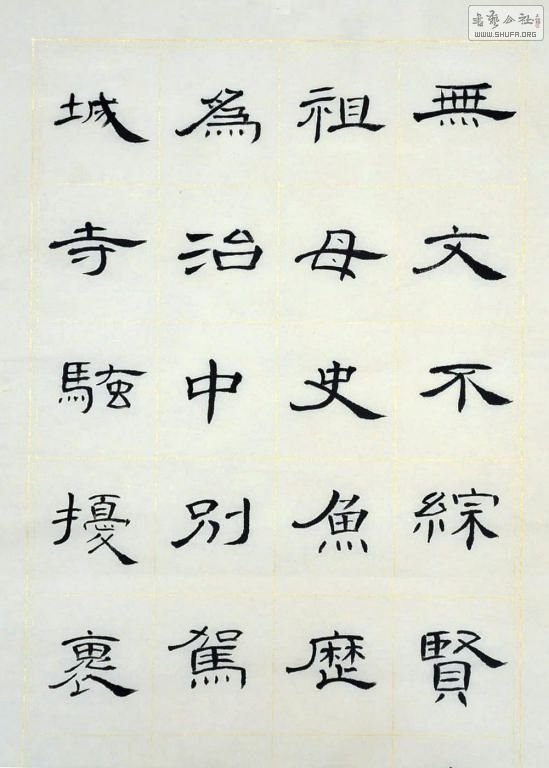 無文不綜賢
祖母史魚歷
為治中別駕
城寺騷擾裏
書藝公社
WWW.SHUFA.ORG